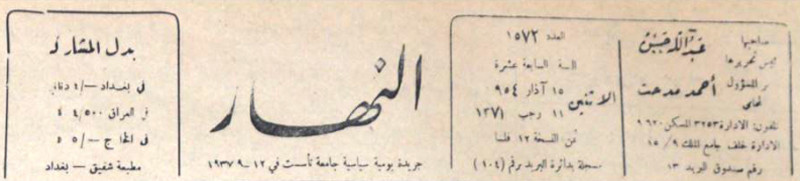 صاحبها
عبد الله حسين
رئيس تحريرها
المسؤول
المحامي
أحمد مدحت
تلفون: الادارة ٣٢٥٣ المسكن ٩٦٢٠
الادارة خلف جامع الملك ١٥/٩
رقم صندوق البريد ١٣
العدد ١٥٧٢
السنة السابعة عشرة
الاثنين
١٥ آذار ٩٥٤
١١ رجب ١٣٧١
ثمن النسخة ١٢ فلسا
مسجلة بدائرة البريد برقم (١٠٤)
النهار
جريدة يومية سياسية جامعة تأسست في ١٢-٩-١٩٣٧
بدل المشارك
في بغداد -/٤
في العراق ٤/٥٠٠
في الخارج -/٥
مطبعة شفيق - بغداد